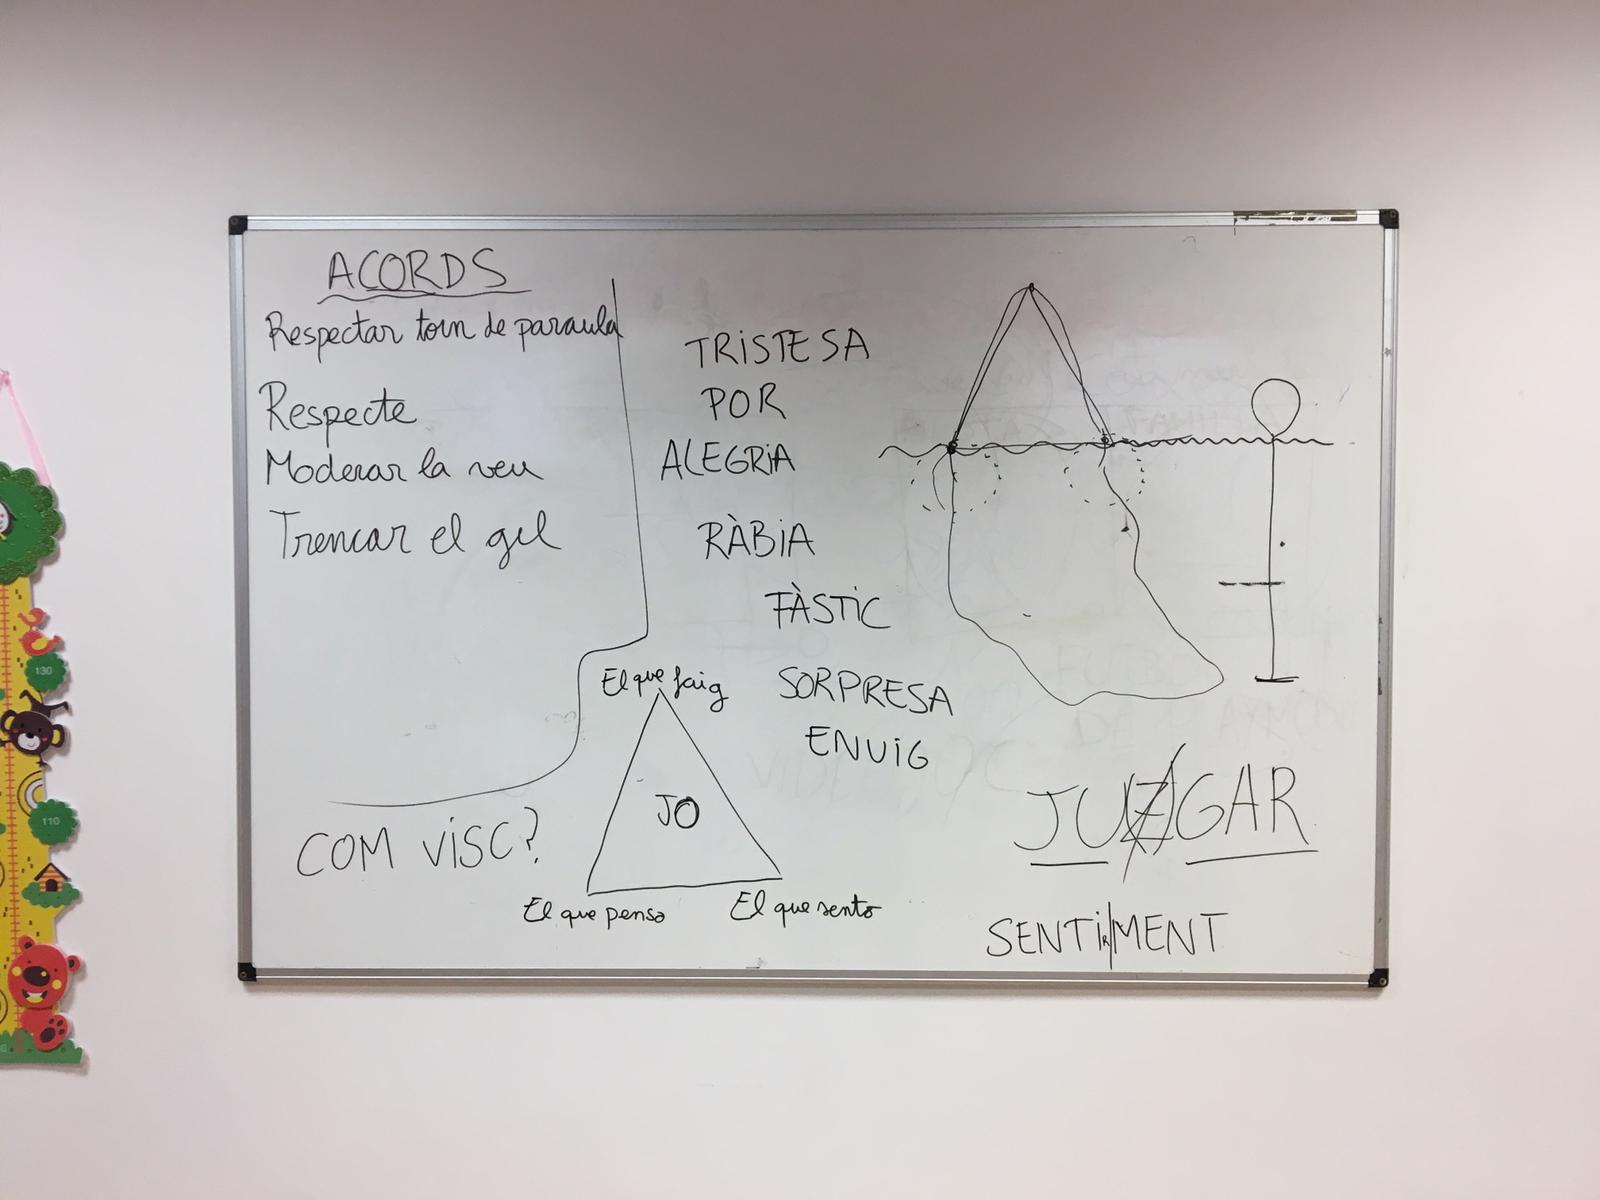 ACORDS
Respectar torn de paraula
Respecte
Moderar la veu
Trencar el gel
TRISTESA
POR
ALEGRIA
RÀBIA
FÀSTIC
SORPRESA
ENUIG
COM VISC?
El que faig
JO
El que penso
El que sento
JUZGAR
SENTIMENT
130
110